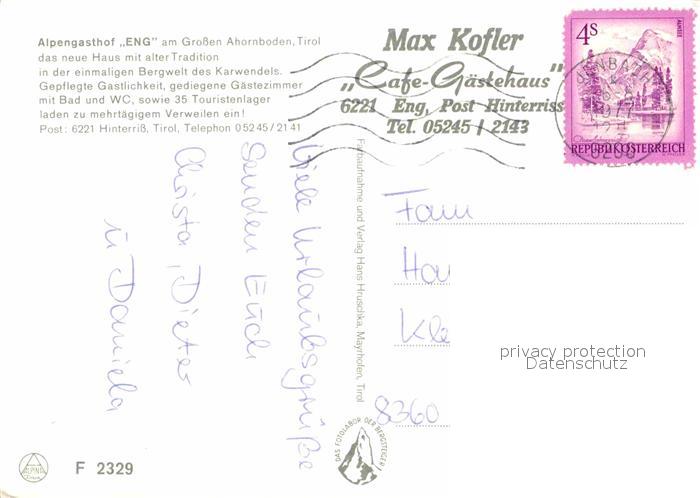 Alpengasthof „ENG" am Großen Ahornboden, Tirol
das neue Haus mit alter Tradition
in der einmaligen Bergwelt des Karwendels.
Gepflegte Gastlichkeit, gediegene Gästezimmer
mit Bad und WC, sowie 35 Touristenlager
laden zu mehrtägigem Verweilen ein!
Post: 6221 Hinterriß, Tirol, Telephon 05245/21 41
Max Kofler
„Cafe-Gästehaus"
6221 Eng, Post Hinterriss
Tel. 05245 / 2143
4s
REPUBLIK ÖSTERREICH
Viele Urlaubsgrüße
senden Euch
Christa, Dieter
u Daniela
Farbaufnahme und Verlag Hans Hruschka, Mayrhofen, Tirol
Fam
Hau
Kle
8360
privacy protection
Datenschutz
DAS FOTOLABOR DER BERGSTEIGER
ALPINA
F 2329